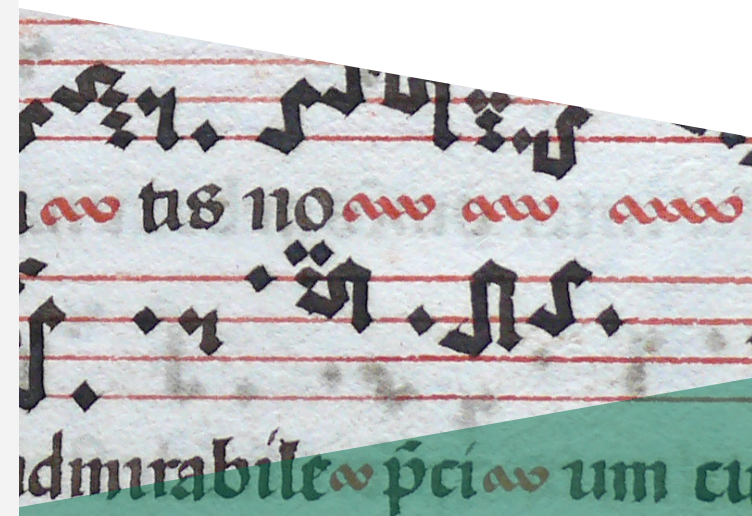 tis no
admirabile p̄ci um